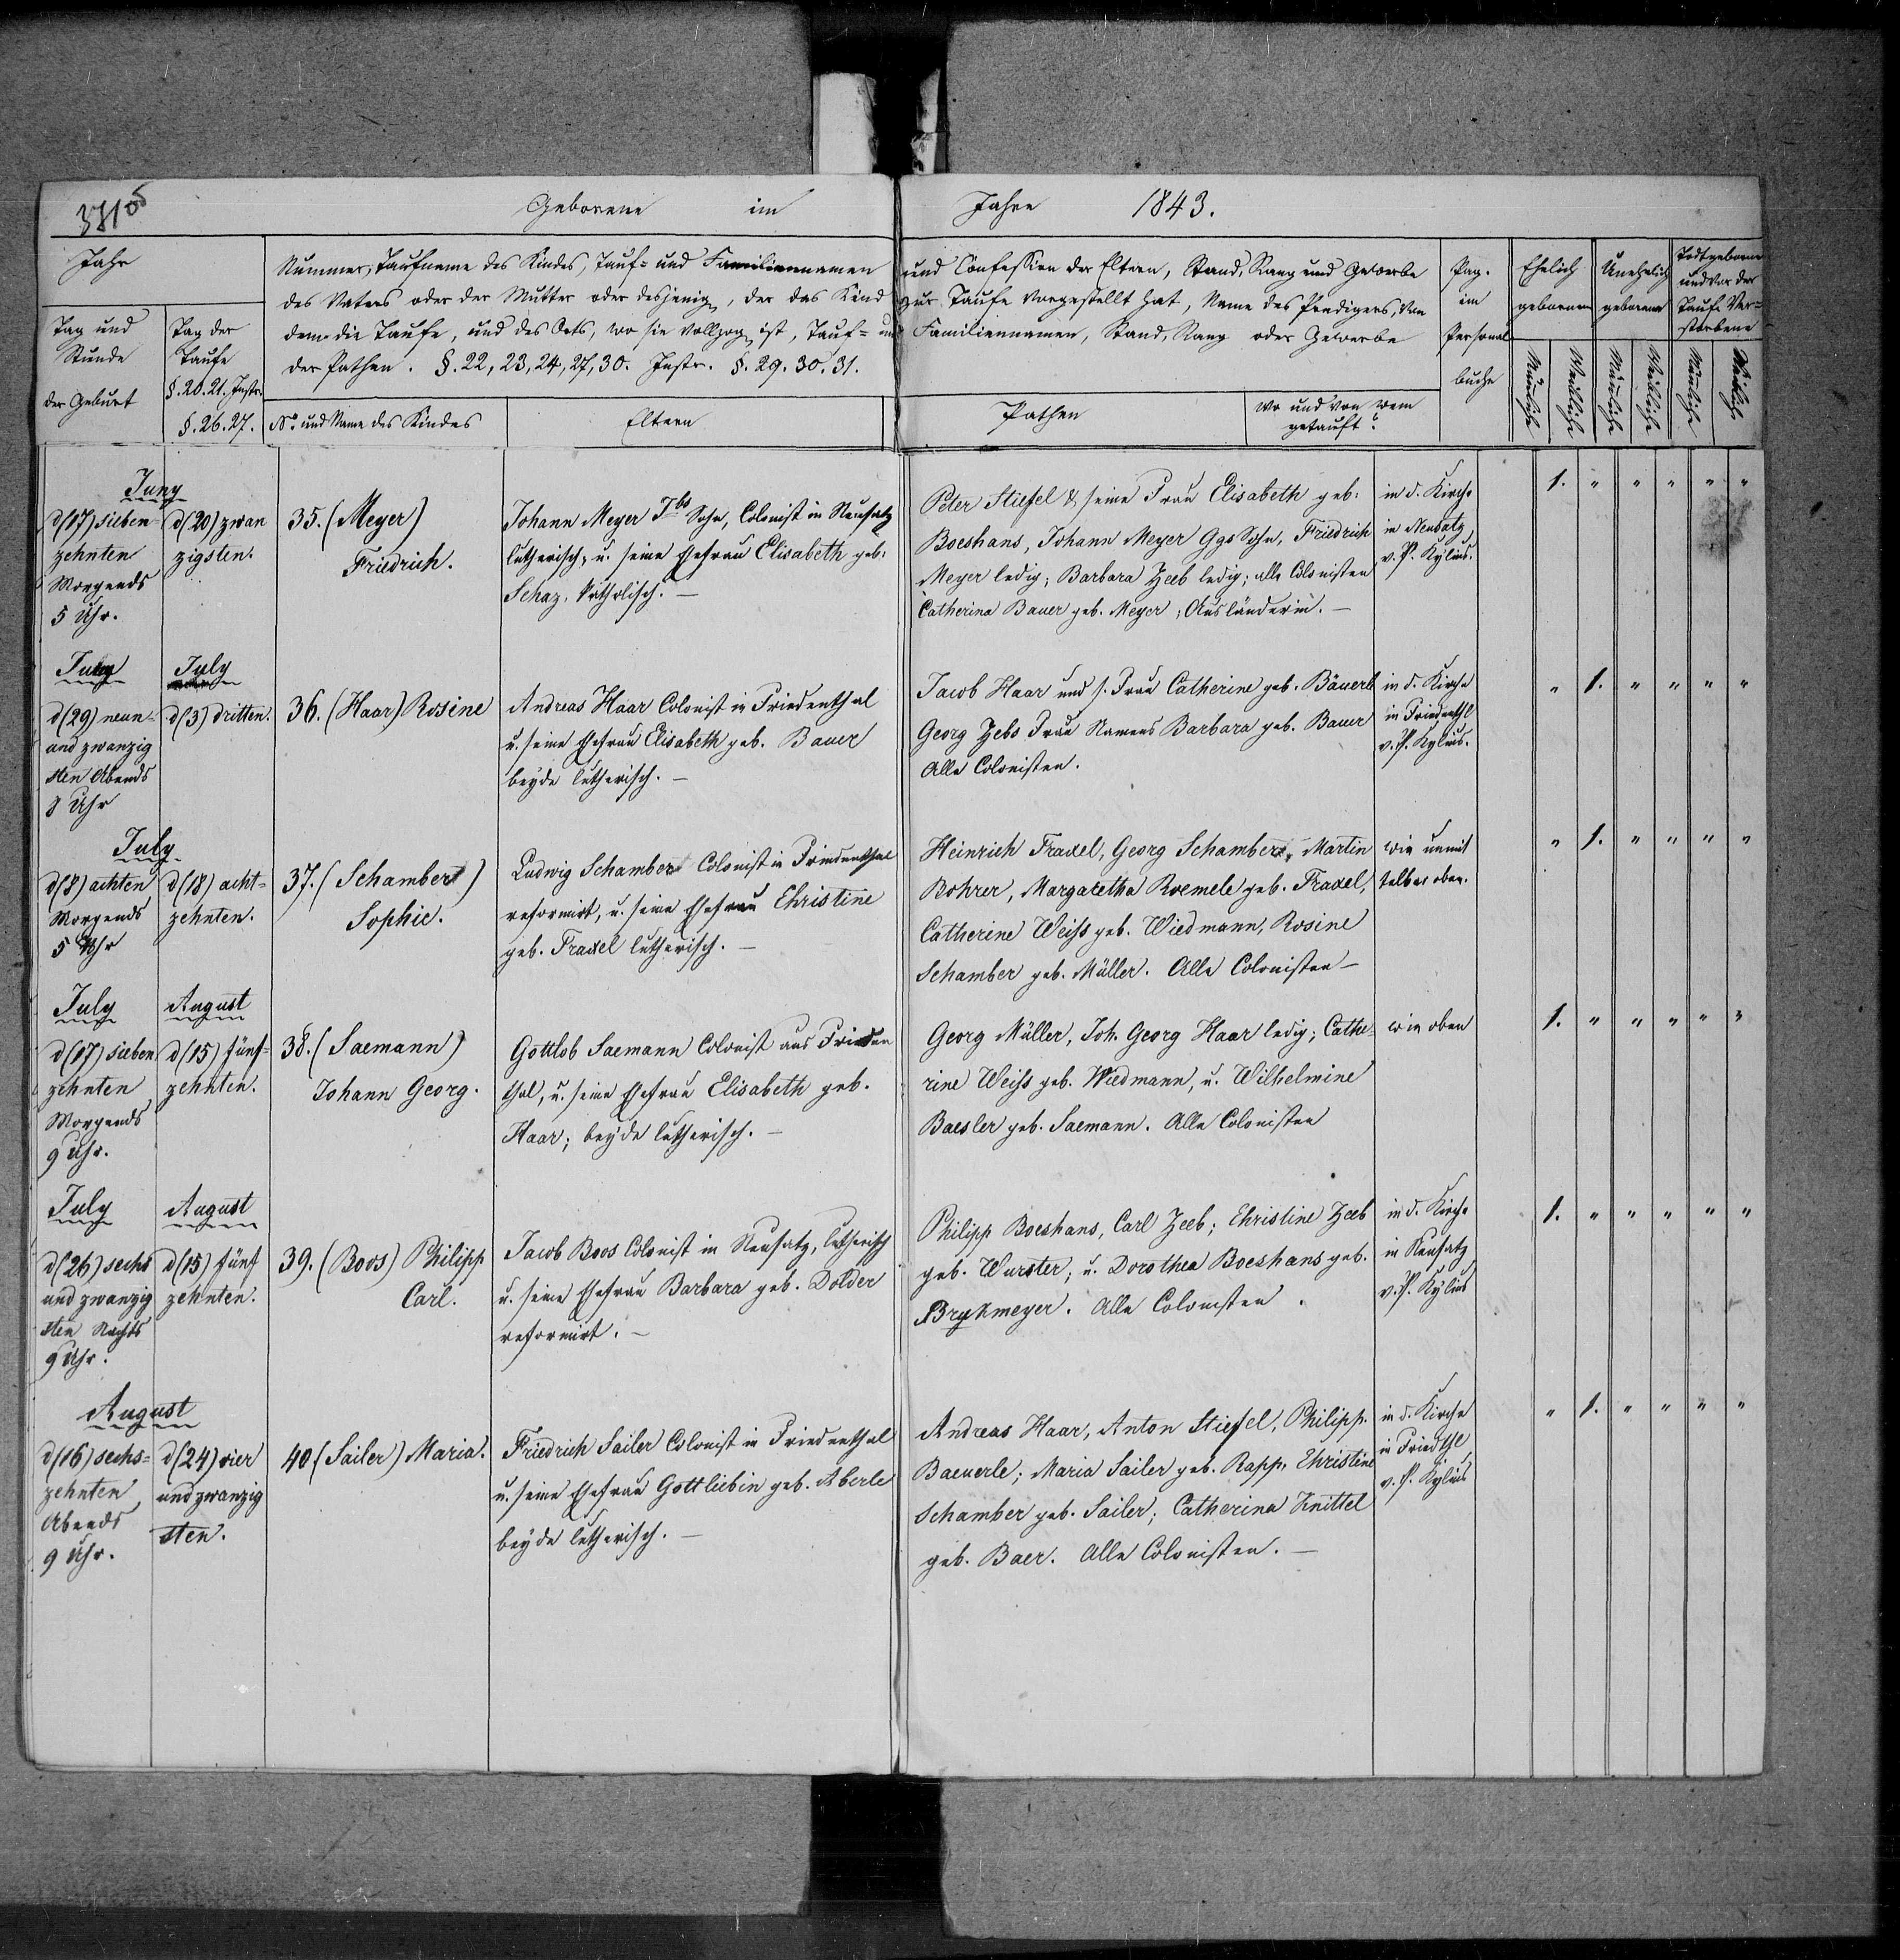 Geborene im Jahre 1843.
Jahr
Tag und
Stunde
der Geburt
Tag der
Taufe
§. 20. 21. Instr.
§. 26. 27.
Nummer, Taufname des Kindes, Tauf- und Familiennamen
des Vaters oder der Mutter oder desjenig, der das Kind
dem die Taufe, und des Orts, wo sie vollzog ist, Tauf- und
der Pathen. §. 22, 23, 24, 27, 30. Instr. §. 29. 30. 31.
No. und Name des Kindes
Eltern
und Confession der Eltern, Stand, Rang und Gewerbe
zur Taufe vorgestellt hat, Name des Predigers, von
Familiennamen, Stand, Rang oder Gewerbe
Pathen
wo und von wem
getauft?
Pag.
im
Personal
buche
Ehelich
geborenen
Unehelich
geborene
Todtgeborene
und vor der
Taufe Ver-
storbene
Männliche
Weibliche
Männliche
Weibliche
Männliche
Weibliche
Juny
d (17) sieben
zehnten
Morgends
5 Uhr.
d (20) zwan
zigsten.
35. (Meyer)
Friedrich.
Johann Meyer Jbs Sohn, Colonist in Neusatz
lutherisch, u. seine Ehefrau Elisabeth geb.
Schaz, katholisch. —
Peter Stiefel & seine Frau Elisabeth geb.
Boeshans, Johann Meyer Ggs Sohn, Friedrich
Meyer ledig; Barbara Zeeb ledig; alle Colonisten
Catherina Bauer geb. Meyer, Ausländerin. —
in d. Kirche
in Neusatz
v. P. Kylius.
1. " " " " "
Juny
d (29) neun-
und zwanzig
sten Abends
8 Uhr
July
d (3) dritten.
36. (Haar) Rosine
Andreas Haar Colonist in Friedenthal
u. seine Ehefrau Elisabeth geb. Bauer
beyde lutherisch. —
Jacob Haar und s. Frau Catherine geb. Bäuerle
Georg Zebs Frau Namens Barbara geb. Bauer
Alle Colonisten.
in d. Kirche
in Friedenthl
v. P. Kylius.
" 1. " " " "
July
d (8) achten
Morgends
5 Uhr
d (18) acht-
zehnten.
37. (Schambert)
Sophie.
Ludwig Schamber Colonist in Friedenthal
reformirt, u. seine Ehefrau Christine
geb. Fraxel lutherisch. —
Heinrich Fraxel, Georg Schamber, Martin
Rohrer, Margaretha Roemele geb. Fraxel,
Catherine Weiss geb. Wiedmann, Rosine
Schamber geb. Müller. Alle Colonisten —
wie unmit
telbar oben.
" 1. " " " "
July
d (17) sieben
zehnten
Morgends
9 Uhr.
August
d (15) fünf-
zehnten.
38. (Saemann)
Johann Georg.
Gottlob Saemann Colonist aus Frieden
thal, u. seine Ehefrau Elisabeth geb.
Haar; beyde lutherisch. —
Georg Müller, Joh. Georg Haar ledig; Cathe-
rine Weiss geb. Wiedmann, u. Wilhelmine
Baesler geb. Saemann. Alle Colonisten
wie oben
1. " " " " "
July
d (26) sechs
und zwanzig
sten Nachts
9 Uhr.
August
d (15) fünf
zehnten.
39. (Boos) Philipp
Carl.
Jacob Boos Colonist in Neusatz, lutherisch
u. seine Ehefrau Barbara geb. Dolder
reformirt. —
Philipp Boeshans, Carl Zeeb; Christine Zeeb
geb. Wurster; u. Dorothea Boeshans geb.
Brykmeyer. Alle Colonisten.
in d. Kirche
in Neusatz
v. P. Kylius
1. " " " " "
August
d (16) sechs-
zehnten
Abends
9 Uhr.
d (24) vier
und zwanzig
sten.
40. (Sailer) Maria.
Friedrich Sailer Colonist in Friedenthal
u. seine Ehefrau Gottliebin geb. Aberle
beyde lutherisch. —
Andreas Haar, Anton Stiefel, Philipp.
Baeuerle; Maria Sailer geb. Rapp, Christine
Schamber geb. Sailer; Catherina Knittel
geb. Baer. Alle Colonisten. —
in d. Kirche
in Friedthl
v. P. Kylius
" 1. " " " "